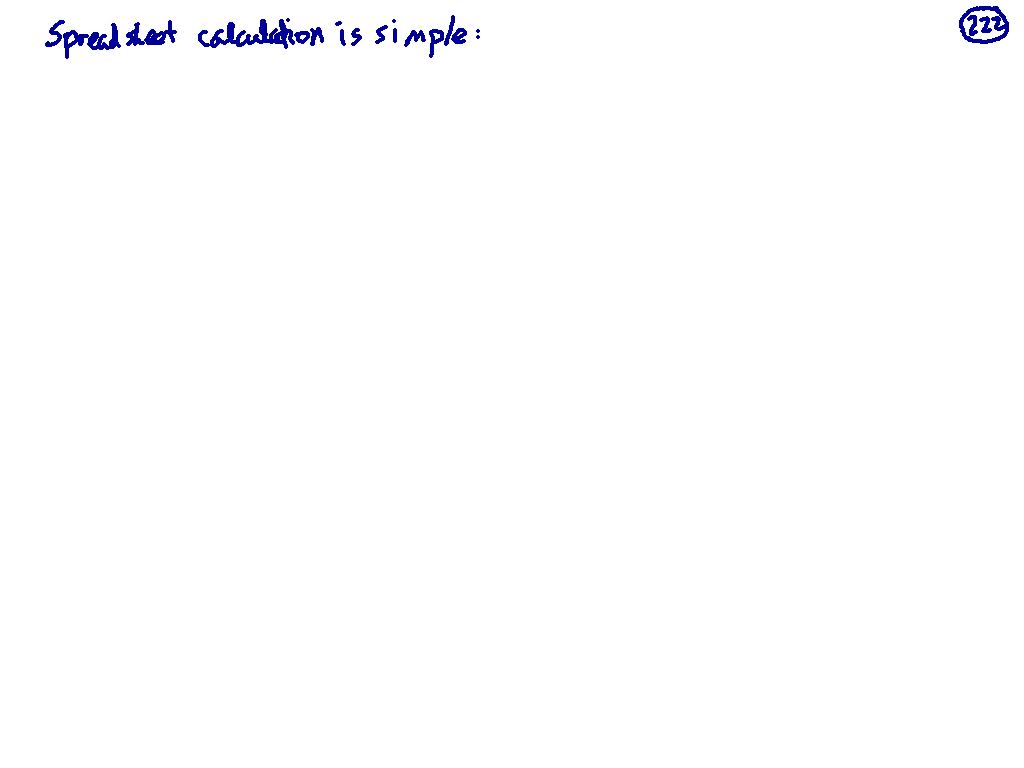 Spreadsheet calculation is simple:
222